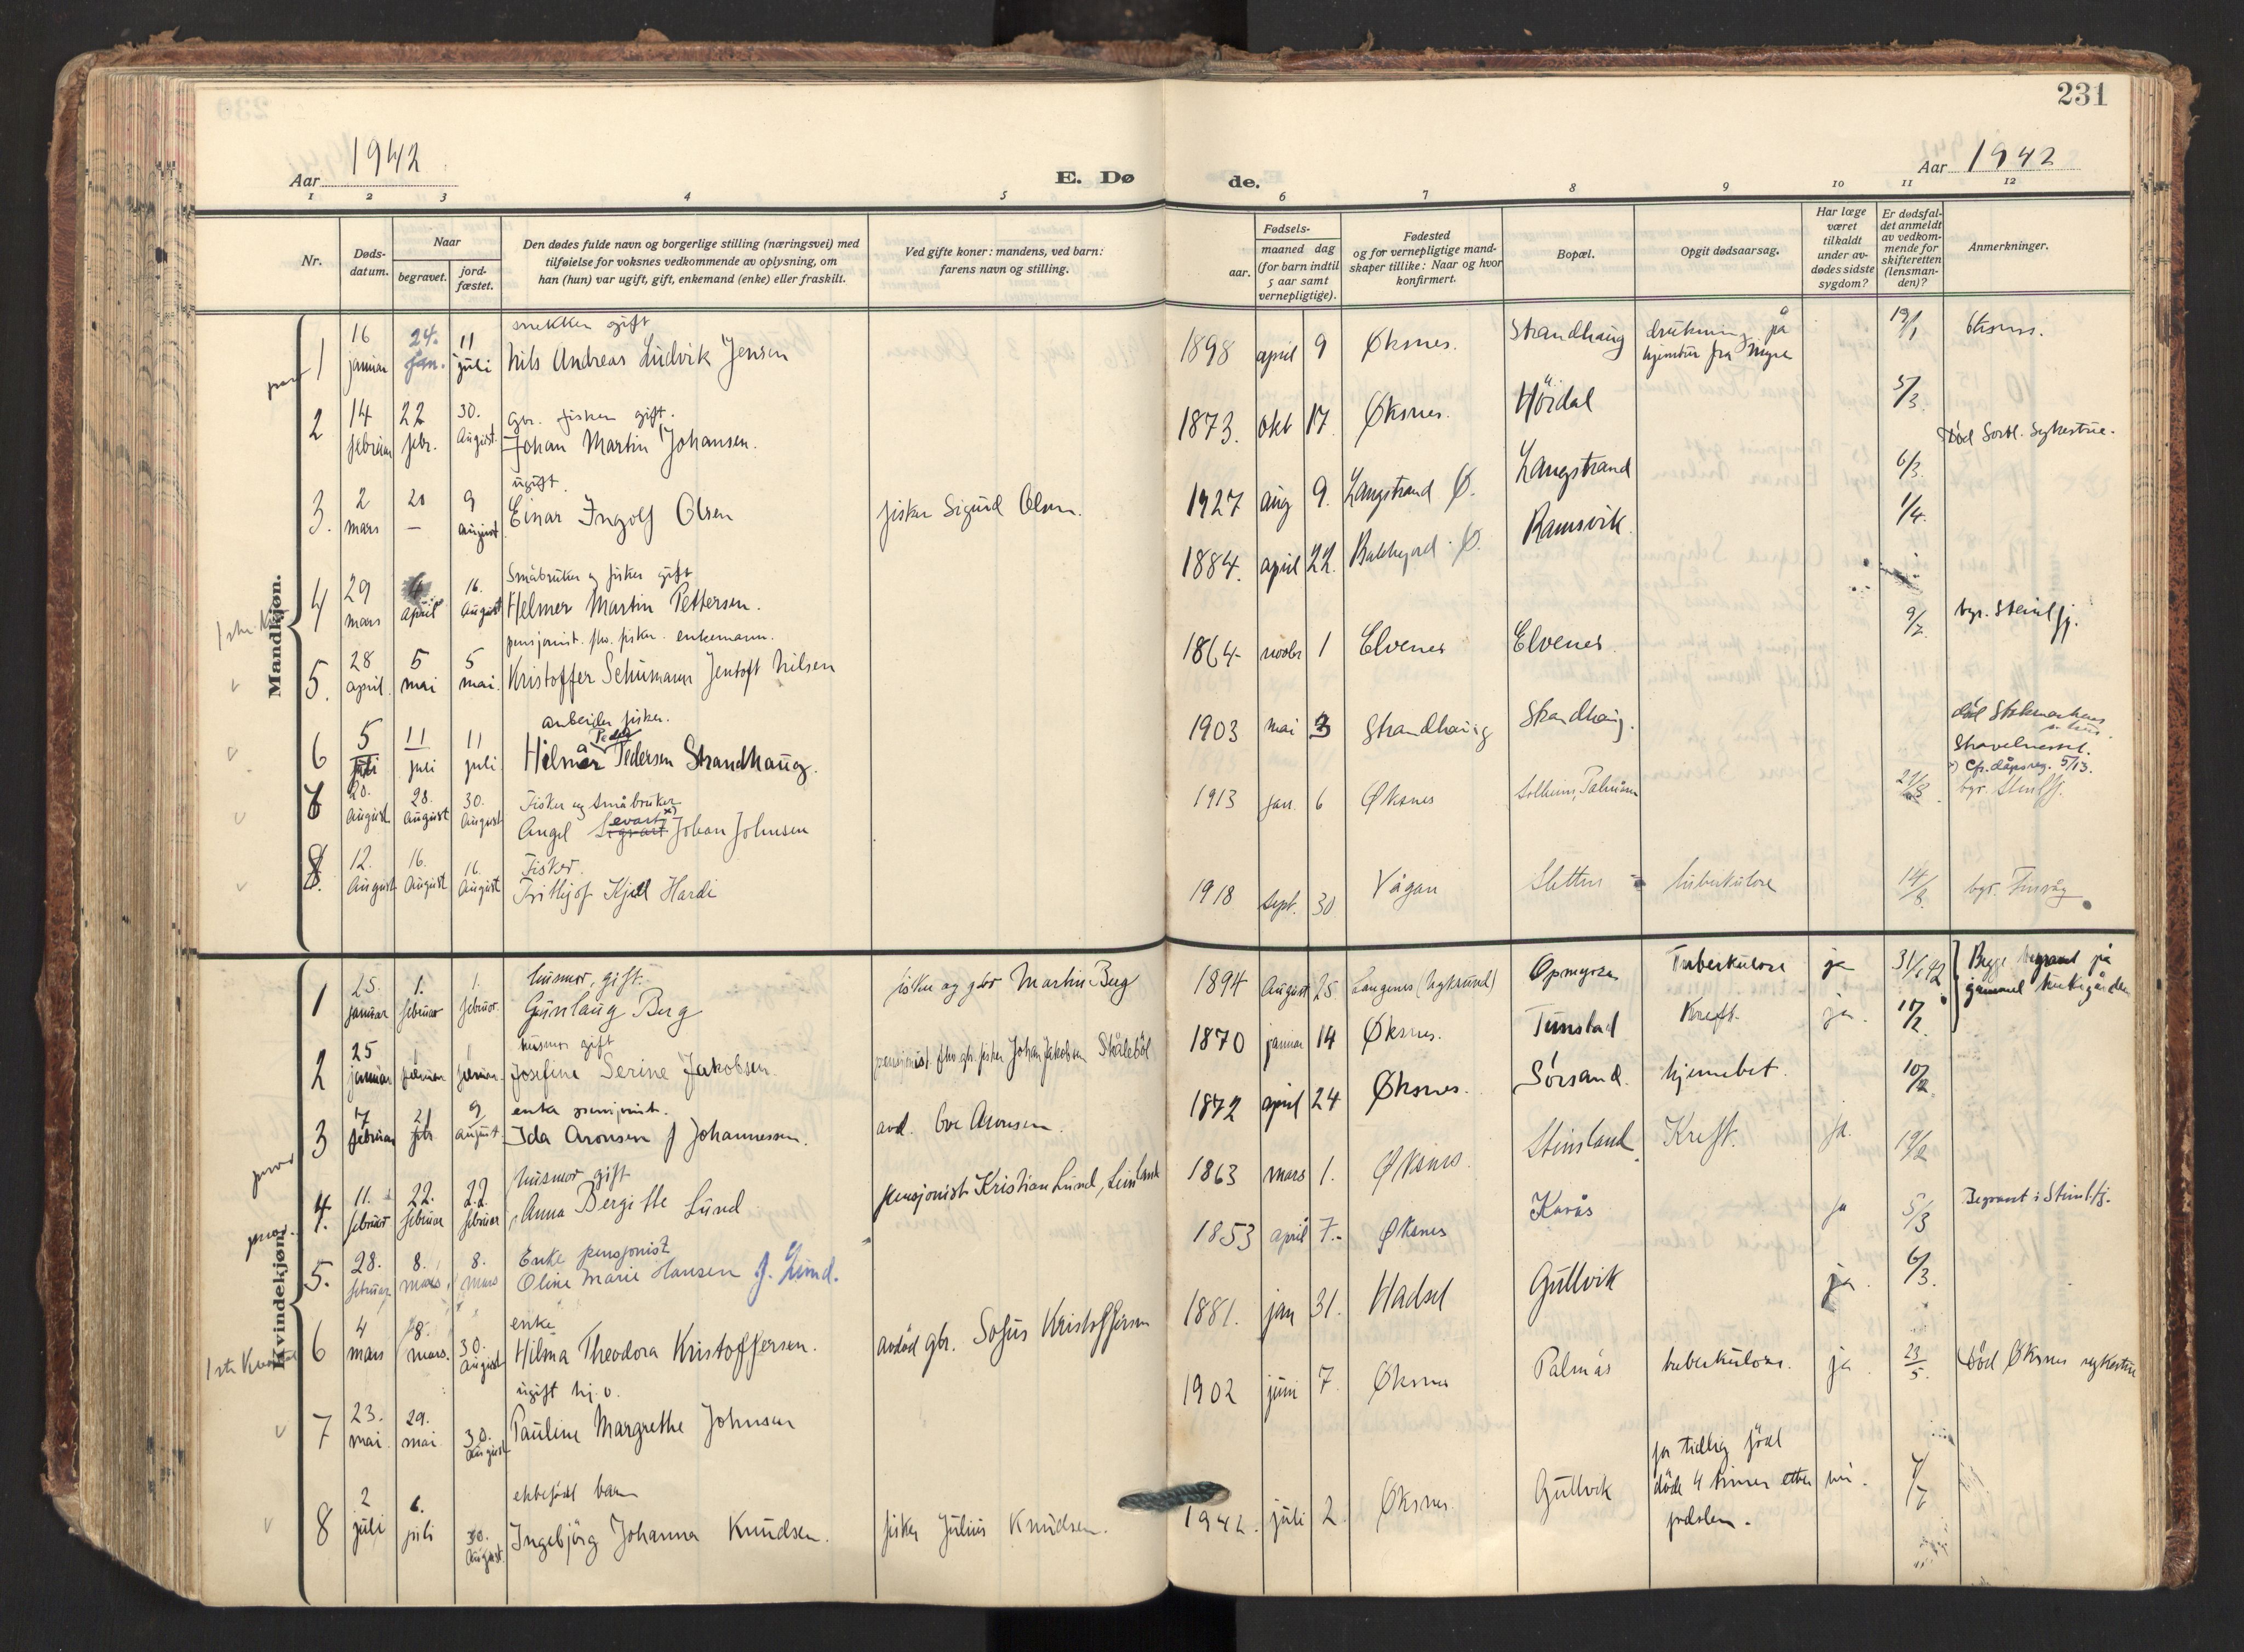 231
Aar 1942
E. Dø
de.
Aar 1942
1 2 3 4 5 6 7 8 9 10 11 12
Nr.
Døds-
datum.
Naar
begravet.
jord-
fæstet.
Den dødes fulde navn og borgerlige stilling (næringsvei) med
tilføielse for voksnes vedkommende av oplysning, om
han (hun) var ugift, gift, enkemand (enke) eller fraskilt.
Ved gifte koner: mandens, ved barn:
farens navn og stilling.
Fødsels-
aar.
maaned dag
(for barn indtil
5 aar samt
vernepligtige).
Fødested
og for vernepligtige mand-
skaper tillike: Naar og hvor
konfirmert.
Bopæl.
Opgit dødsaarsag.
Har læge
været
tilkaldt
under av-
dødes sidste
sygdom?
Er dødsfal-
det anmeldt
av vedkom-
mende for
skifteretten
(lensman-
den)?
Anmerkninger.
Mandkjøn.
1 16 januar 24. jan. 11 juli
snekker gift
Nils Andreas Ludvik Jensen
1898 april 9 Øksnes. Strandhaug
drukning på
hjemtur fra Myre
19/1
2 14 februar 22 febr. 30. August.
gbr. fisker gift.
Johan Martin Johansen.
1873. okt 17 Øksnes. Höidal 5/3
Död Sortl. Sykestue.
3. 2 mars 20 — 9 august
ugift.
Einar Ingolf Olsen
fisker Sigurd Olsen.
1927 aug 9. Langstrand Ø. Langstrand 6/3.
4 29 mars april 16. August
Småbruker og fisker gift
Helmer Martin Pettersen.
1884. april 22. Ø. Ramsvik. 1/4.
5. 28 april. 5 mai 5 mai.
pensjonist. fhv. fisker. enkemann.
Kristoffer Schumann Jentoft Nilsen
1864 novbr 1 Elvenes Elvenes. 9/7.
bgr. Steinlfj.
6 5 juli 11 juli 11 juli
arbeider fisker.
Hilmar Pedersen Strandhaug.
1903 mai 3 Strandhaug Strandhaug.
död Stokmarknes
s. hus.
Skavelnesset.
x) Cfr. dåpsreg. 5/13.
7 20. August 28. August 30. August
Fisker og småbruker
evart x)
Angel Sigvart Johan Johnsen
1913 jan. 6 Øksnes Solheim, Palmåsen
bgr. Steinlfj.
8. 12. August 16. August 16. August
Fisker.
Frithjof Kjell Hardi
1918 Sept. 30 Vågan Sletten tuberkulose 14/8.
bgr. Tinvåg
Kvindekjøn.
1 25. januar 1. februar 1. februar.
husmor, gift.
Gunlaug Berg
fisker og gbr Martin Berg
1894 August 25. Langenes Opmyren Tuberkulose ja 31/1 42
Begge begravet på
gammel kirkegården
2 25 januar 1 februar 1 februar.
husmor gift
Josefine Serine Jakobsen.
pensjonist. fhv. gbr. fisker Johan Jakobsen Skåleböl
1870 januar 14 Øksnes. Tunstad Kreft. ja. 17/2.
3 7 februar 21 febr 9 august.
enke pensjonist.
Ida Aronsen f Johannessen.
avd. Ove Aronsen.
1872 april 24 Øksnes. Sörsand. hjernebet. 10/2
4. 11. februar 22. februar 22. februar
husmor gift
Anna Bergitte Lund
pensjonist Kristian Lund, Steinland
1863 mars 1. Øksnes. Stinsland. Kreft. ja. 19/2
5. 28. februar 8. mars. 8. mars
Enke pensjonist
Oline Marie Hansen f. Lund.
1853 april 7. Øksnes Kavås ja 5/3
Begravet i Steinlfj.
6 4 mars 18. mars. 30. August
enke
Hilma Theodora Kristoffersen.
avdöd gbr. Sofus Kristoffersen
1881. jan 31. Hadsel Gullvik ja. 6/3.
7 23. mai. 29. mai 30. August
ugift hj. o.
Pauline Margrethe Johnsen
1902 juni 7. Øksnes Palmås tuberkulose. ja 23/5.
Död Øksnes sykestue
8 2 juli 6. juli 30. August.
ektefödt barn
Ingebjörg Johanna Knudsen.
fisker Julius Knudsen.
1942. juli 2. Øksnes. Gullvik
for tidlig född
döde 4 timer etter
födselen.
nei. 7/7